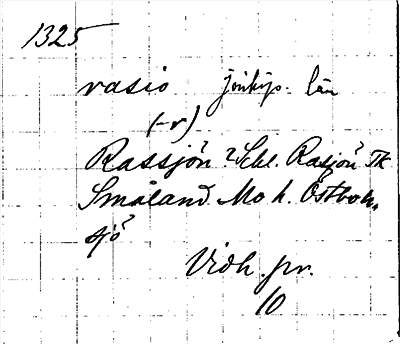 1325
rasio jönköp. län
(-r)
Rassjön ? Schl. Rasjön TK
Småland. Mo h. Östboh.
sjö
Vidh. pr.
10